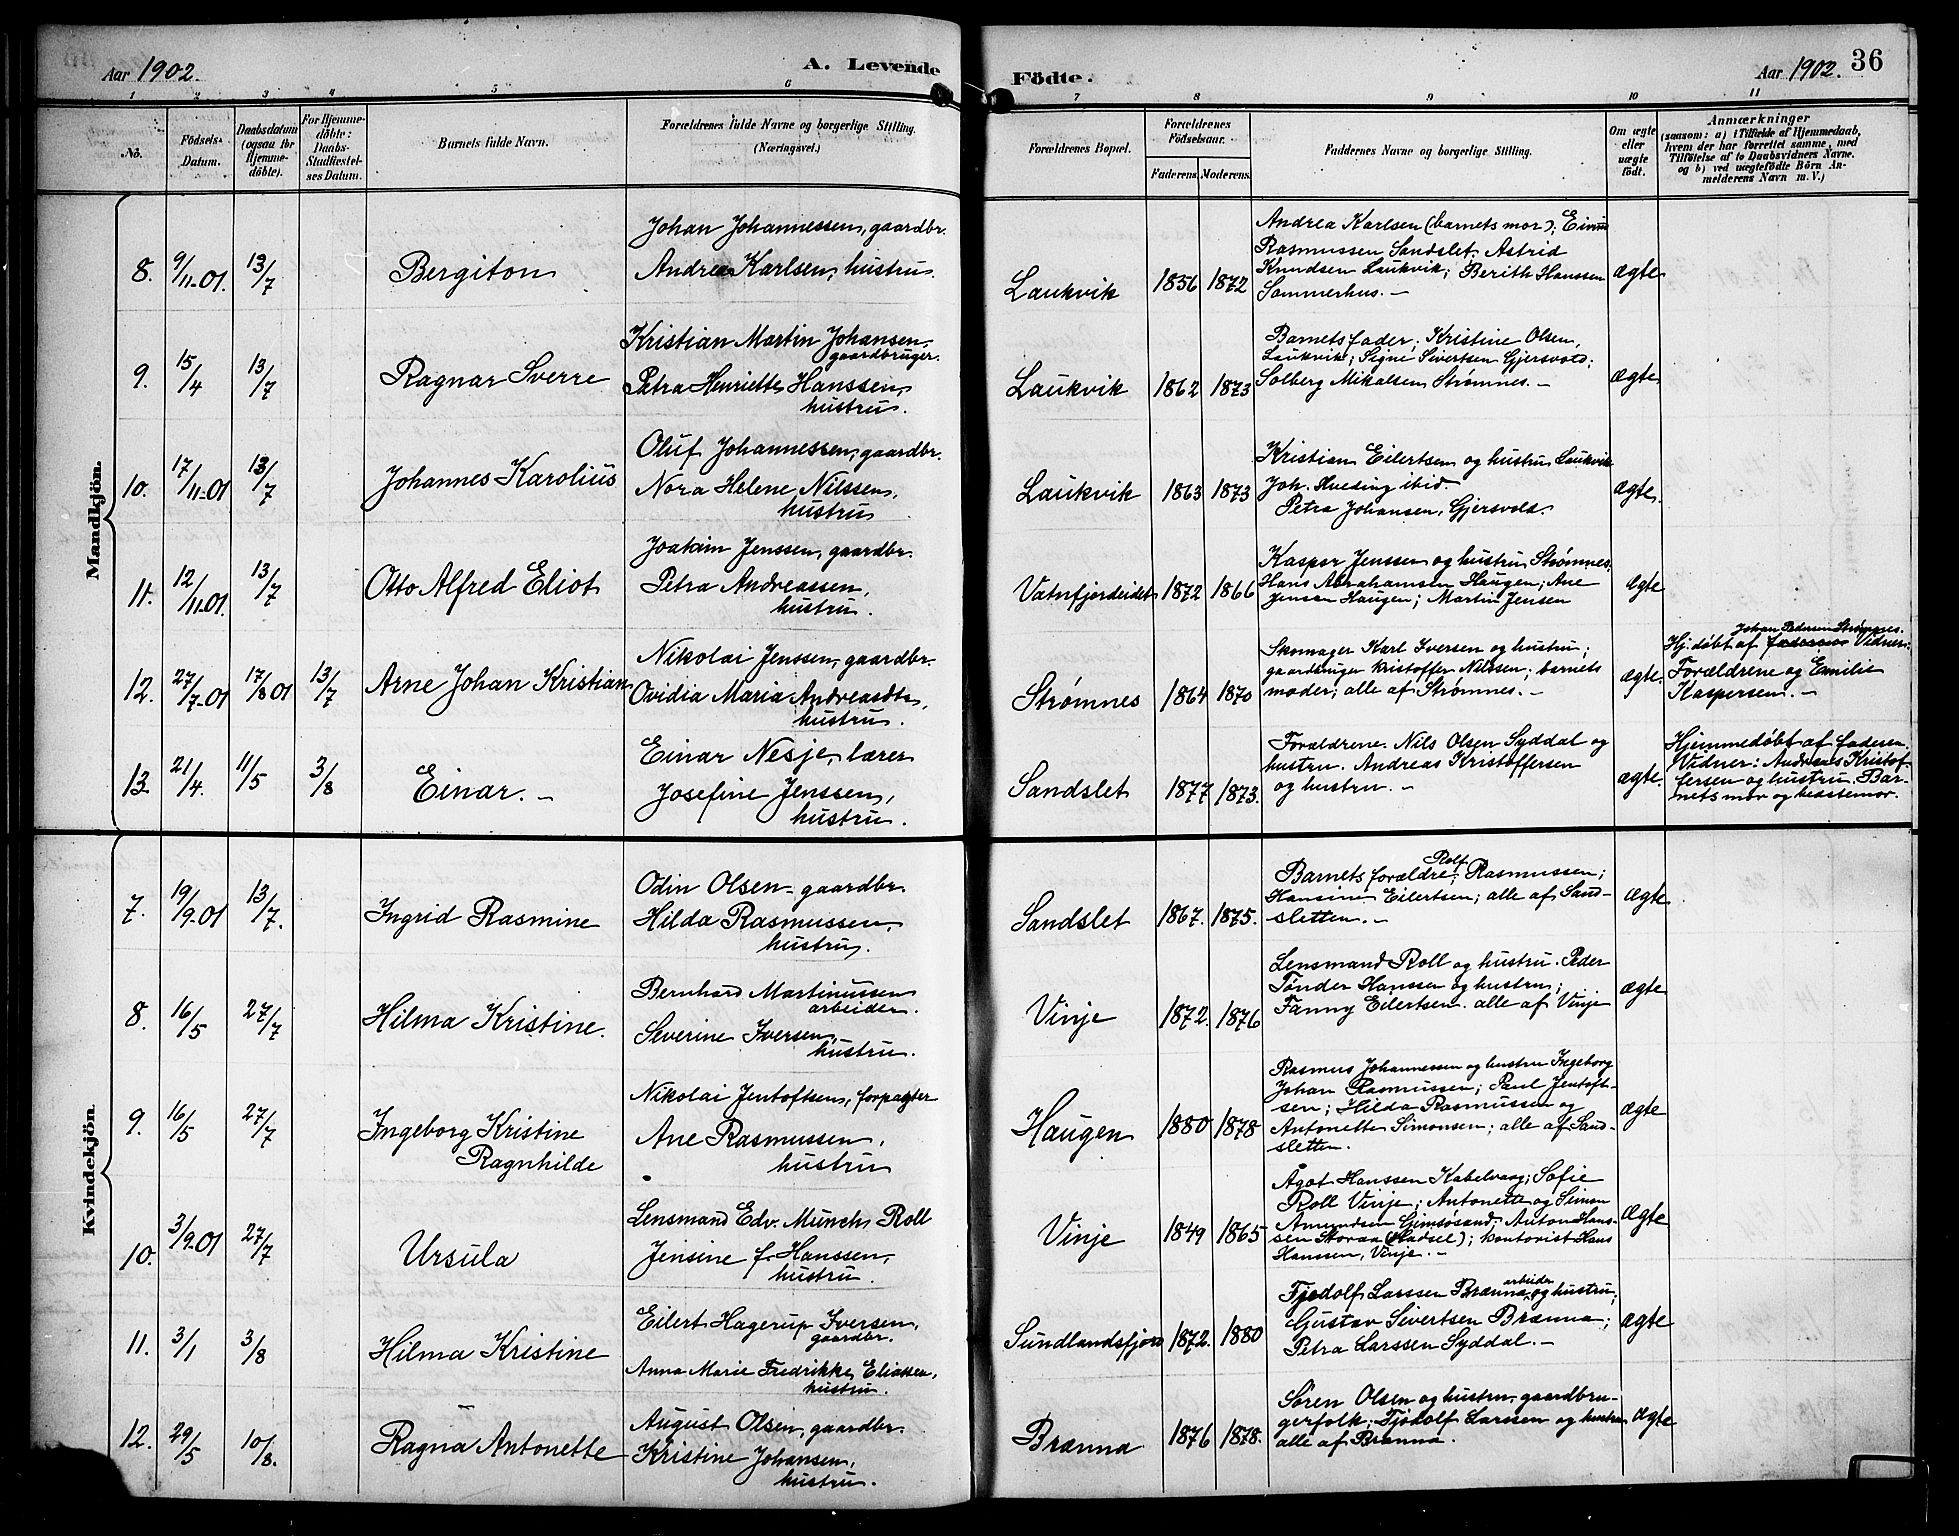 Aar 1902.
A. Levende
Födte.
Aar 1902.
36
1 2 3 4 5 6 7 8 9 10 11
No.
Födsels-
Datum.
Daabsdatum
(ogsaa for
Hjemme-
döbte).
For Hjemme-
döbte:
Daabs-
Stadfæstel-
ses Datum.
Barnets fulde Navn.
Forældrenes fulde Navne og borgerlige Stilling.
(Næringsvei.)
Forældrenes Bopæl.
Forældrenes
Födselsaar.
Faderens. Moderens.
Faddernes Navne og borgerlige Stilling.
Om ægte
eller
uægte
födt.
Anmærkninger
(saasom: a) i Tilfælde af Hjemmedaab,
hvem der har forrettet samme, med
Tilföielse af to Daabsvidners Navne.
og b) ved uægtefödte Börn An-
melderens Navn m. V.)
Mandkjön.
8. 9/11-01. 13/7 Bergiton
Johan Johannessen, gaardbr.
Andrea Karlsen, hustru.
Laukvik 1856 1872
Andrea Karlsen (barnets mor); Einar
Rasmussen Sandslet; Astrid
Knudsen Laukvik; Berith Hanssen
Sommerhus. -
ægte
9. 15/4 13/7 Ragnar Sverre
Kristian Martin Johansen,
gaardbruger.
Petra Henriette Hanssen,
hustru.
Laukvik 1862 1873
Barnets fader; Kristine Olsen,
Laukvik; Signe Sivertsen Gjersvold;
Solberg Mikalsen Strømnes. -
ægte
10. 17/11-01 13/7 Johannes Karolius
Oluf Johannessen, gaardbr.
Nora Helene Nilssen,
hustru
Laukvik 1863 1873
Kristian Eilertsen og hustru Laukvik
Joh. Hveding ibid.
Petra Johansen, Gjersvold.
ægte.
11. 12/11-01. 13/7 Otto Alfred Eliot
Joakim Jenssen, gaardbr.
Petra Andreassen,
hustru.
Vatnfjordeidet 1872 1866
Kasper Jenssen og hustru Strømnes.
Hans Abrahamsen Haugen; Ane
Jensen Haugen; Martin Jensen
ægte
12. 27/7-01 17/8 01 13/7 Arne Johan Kristian
Nikolai Jenssen, gaardbr.
Ovidia Maria Andreasdtr,
hustru.
Strømnes 1864 1870
Skomager Karl Iversen og hustru;
gaardbruger Kristoffer Nilssen; barnets
moder; alle af Strømnes. -
ægte.
Johan Pedersen Strømnes.
Hj. døbt af Vidner:
Forældrene og Emilie
Kaspersen. -
13. 21/4. 11/5 3/8 Einar. -
Einar Nesje, lærer
Josefine Jenssen,
hustru.
Sandslet 1877 1873.
Forældrene. Nils Olsen Syddal og
hustru. Andreas Kristoffersen
og hustru. -
ægte.
Hjemmedøbt af faderen.
Vidner: Andreas Kristof-
fersen og hustru. Bar-
nets mor og bedstemor.
Kvindekjön.
7. 19/9-01 13/7. Ingrid Rasmine
Odin Olsen - gaardbr.
Hilda Rasmussen,
hustru.
Sandslet 1867. 1875.
Rolf
Barnets forældre; Rasmussen;
Hansine Eilertsen; alle af Sand-
sletten. -
ægte
8. 16/5 27/7 Hilma Kristine.
Bernhard Martinussen
arbeider.
Severine Iversen,
hustru.
Vinje 1872. 1876
Lensmand Roll og hustru. Peder
Tønder Hanssen og hustru;
Fanny Eilertsen. alle af Vinje
ægte
9. 16/5 27/7 Ingeborg Kristine
Ragnhilde
Nikolai Jentoftsen, forpagter
Ane Rasmussen,
hustru
Haugen 1880 1878
Rasmus Johannessen og hustru Ingeborg
Johan Rasmussen; Paul Jentoft-
sen; Hilda Rasmussen og
Antonette Simonsen; alle af Sand-
sletten.
ægte
10. 3/9-01 27/7 Ursula
Lensmand Edv. Munch Roll
Jensine f. Hanssen,
hustru.
Vinje 1849 1865
Ågot Hanssen Kabelvaag; Sofie
Roll Vinje; Antonette og Simon
Amundsen Gimsøsand; Anton Hans-
sen Storaa (Hadsel); kontorist Hans
Hanssen, Vinje. -
ægte
11. 3/1 3/8 Hilma Kristine
Eilert Hagerup Iversen,
gaardbr.
Anna Marie Fredrikke Eliassen,
hustru.
Sundlandsfjord 1872. 1880
arbeider
Fjodolf Larssen Brænna og hustru;
Gustav Sivertsen Brænna;
Petra Larssen Syddal. -
ægte
12. 29/5 10/8. Ragna Antonette
August Olsen, gaardbr.
Kristine Johansen,
hustru.
Brænna 1876 1878.
Søren Olsen og hustru, gaardbru-
gerfolk; Fjodolf Larssen og hustru
alle af Brænna.
ægte